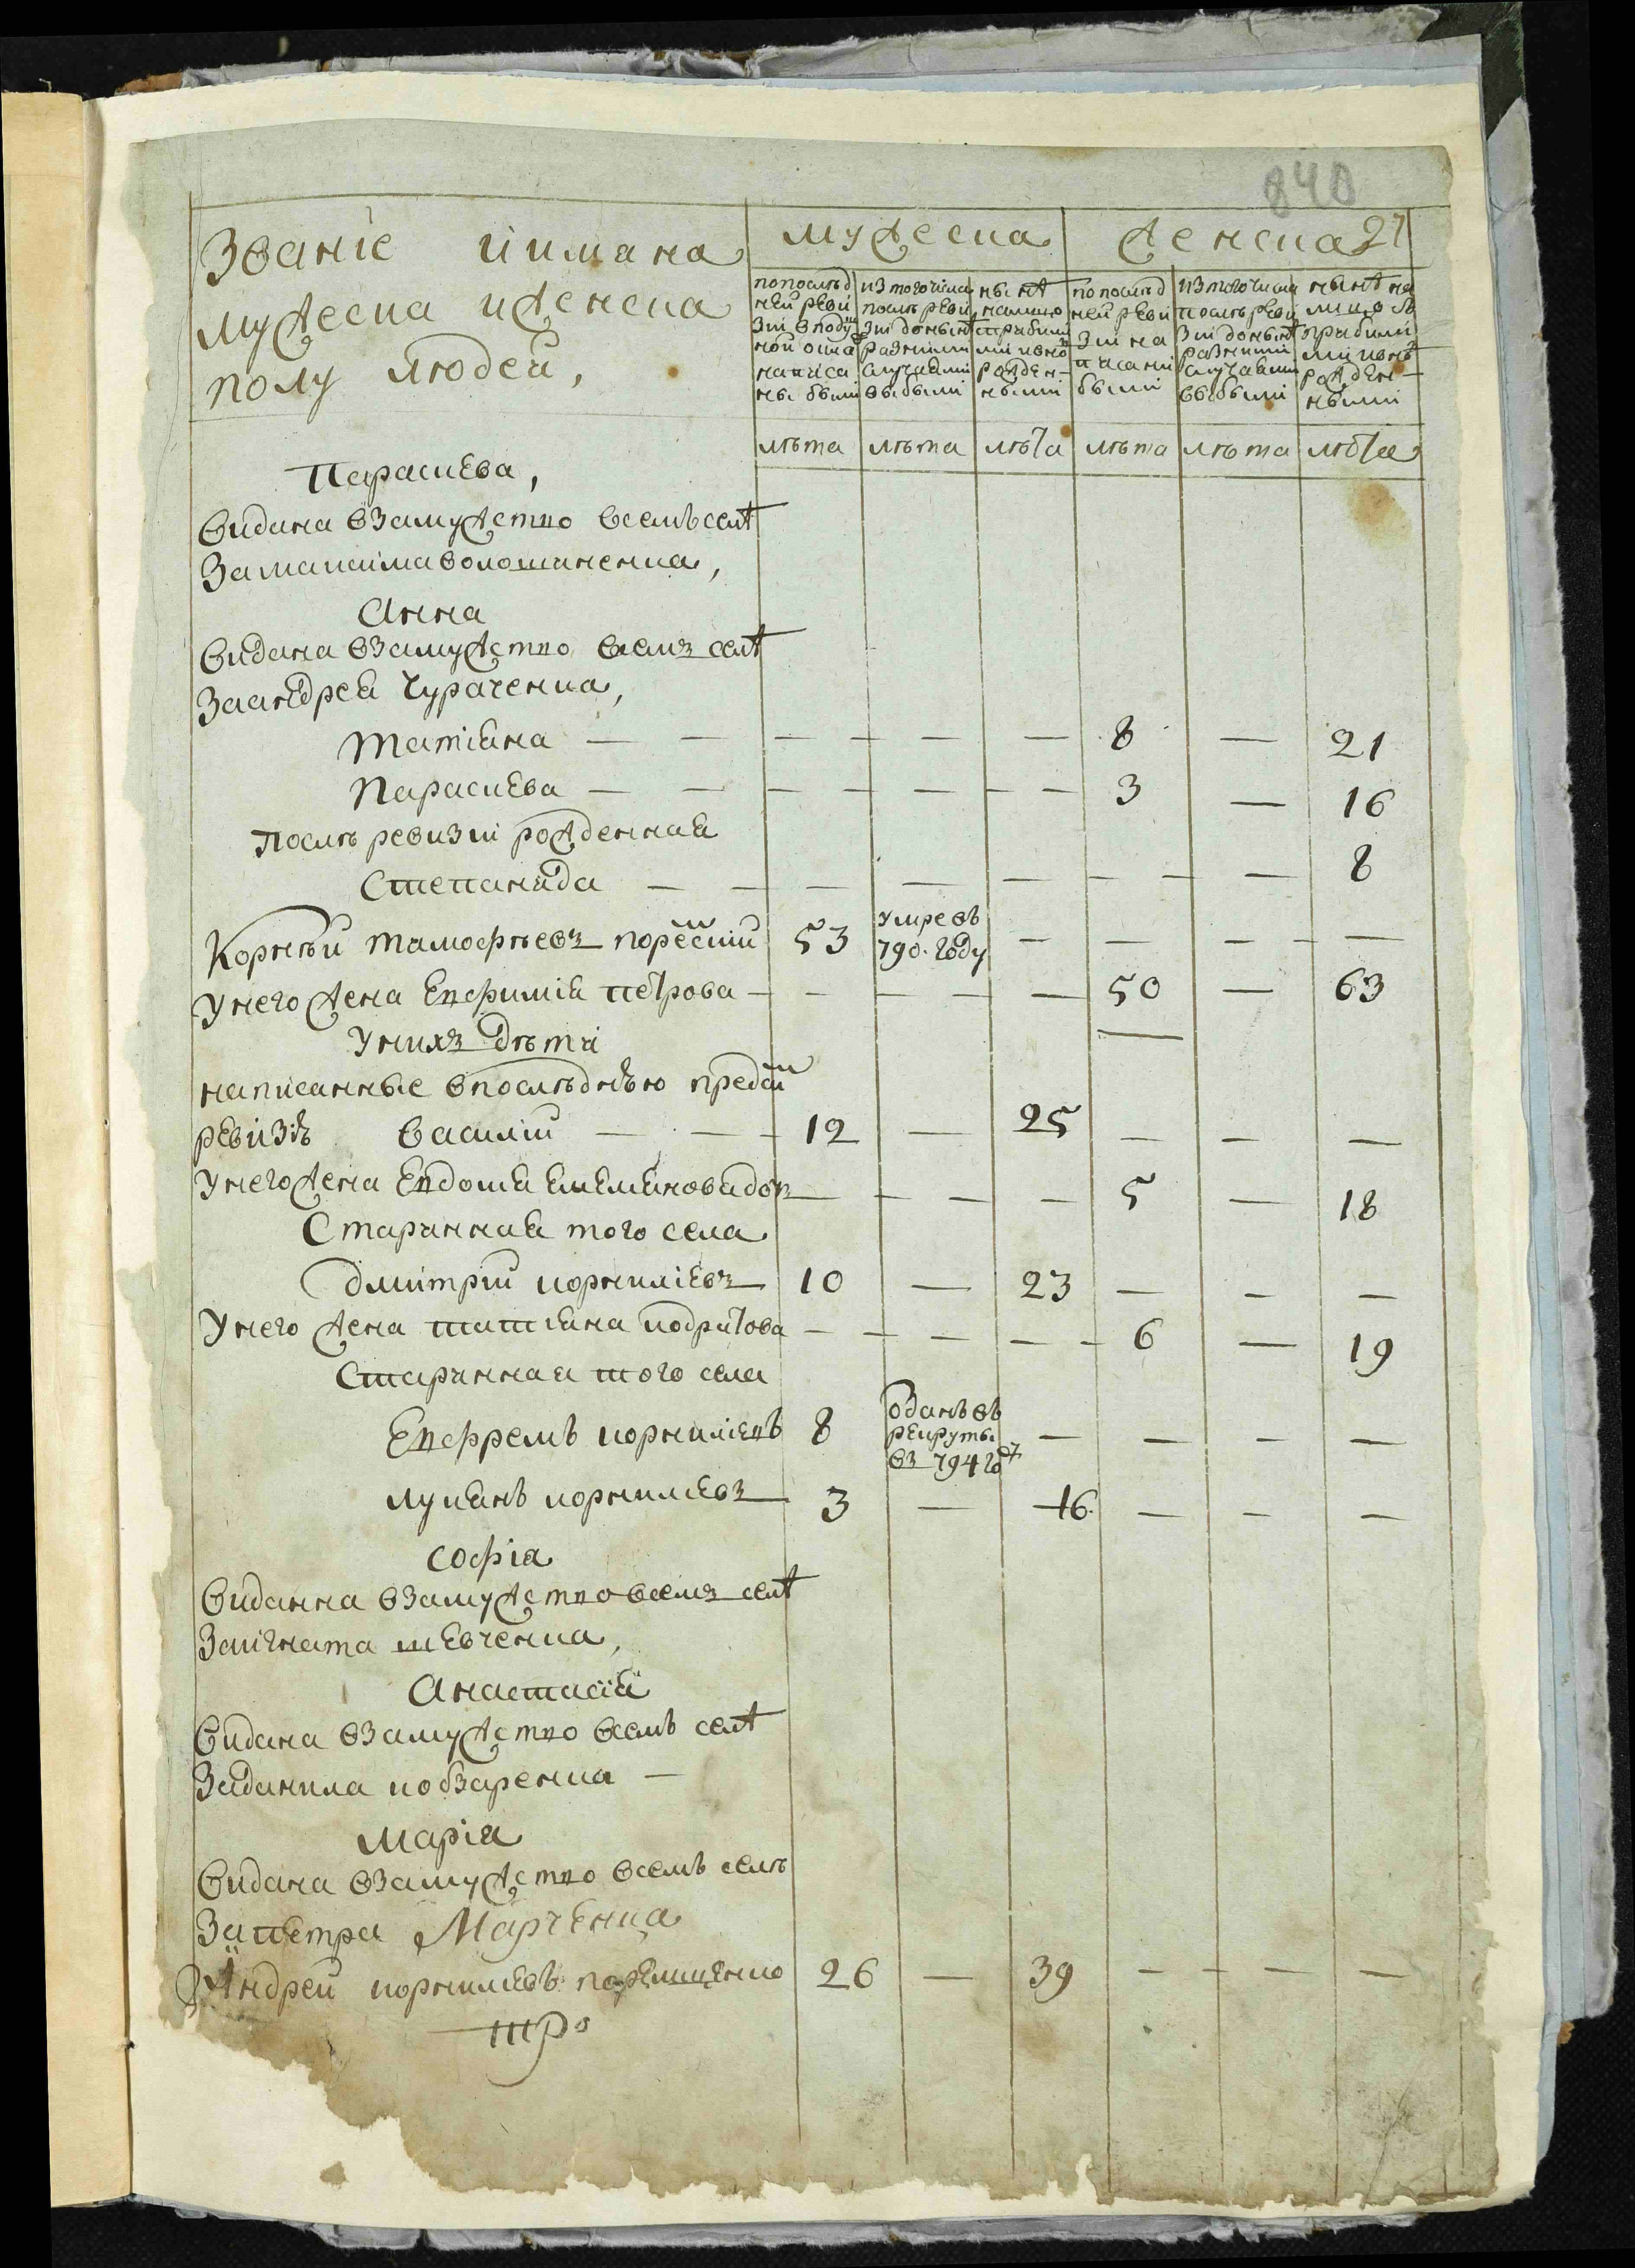 840
27
Званіе и имана
мужеска и женска
полу людей,
мужеска
женска
попослѣд
ней реви
зіи вподу
ной окла
написа
ны были
изтогочисла
послѣ реви
зіи донынѣ
разними
случаями
выбыли
нынѣ
налицо
прибыли
ми ивно
рожден-
ными
попослѣд
ней реви
зіи на
писани
были
изтогочисла
послѣ реви
зіи донынѣ
разними
случаями
выбыли
нынѣ на
лицо съ
прибили
ми ивнѣ
рожден-
ными
лѣта лѣта лѣта лѣта лѣта лѣта
Параскева,
видана взамужство всемъ селѣ
Замаксима волошиненка,
Анна
видана взамужство всемъ селѣ
Заандрея Чураченка,
Татіяна — — — — — — 8 — 21
Параскева — — — — — — — 3 — 16
Послѣ ревизіи рожденная
Степанида — — — — — — — — 8
Корнѣй тамофѣевъ 53 умре въ 790. году — — — — —
Унего жена Евфимія петрова — — — — — 50 — 63
Унихъ дѣти
написанные впослѣднѣю пред
ревізіѣ василій — — — 12 — 25 — — —
Унего жена Евдокия Емеляновадоч — — — — 5 — 18
Старинная того села
дмитрій корниліевъ 10 — 23 — — —
Унего жена татіяна кодратова — — — — — 6 — 19
Старинная того села
Евфремъ корниліевъ 8 оданъ въ рекруты въ 794 го — — — —
лукянъ корниліевъ 3 — 16. — — —
софіа
виданна взамужство всемъ селѣ
Заигната шевченка,
Анастасія
видана взамужство всемъ селѣ
Заданила кобзаренка —
маріа
видана взамужство всемъ селѣ
Запетра Марченка
Андрей корниліевъ 26 — 39 — — — —